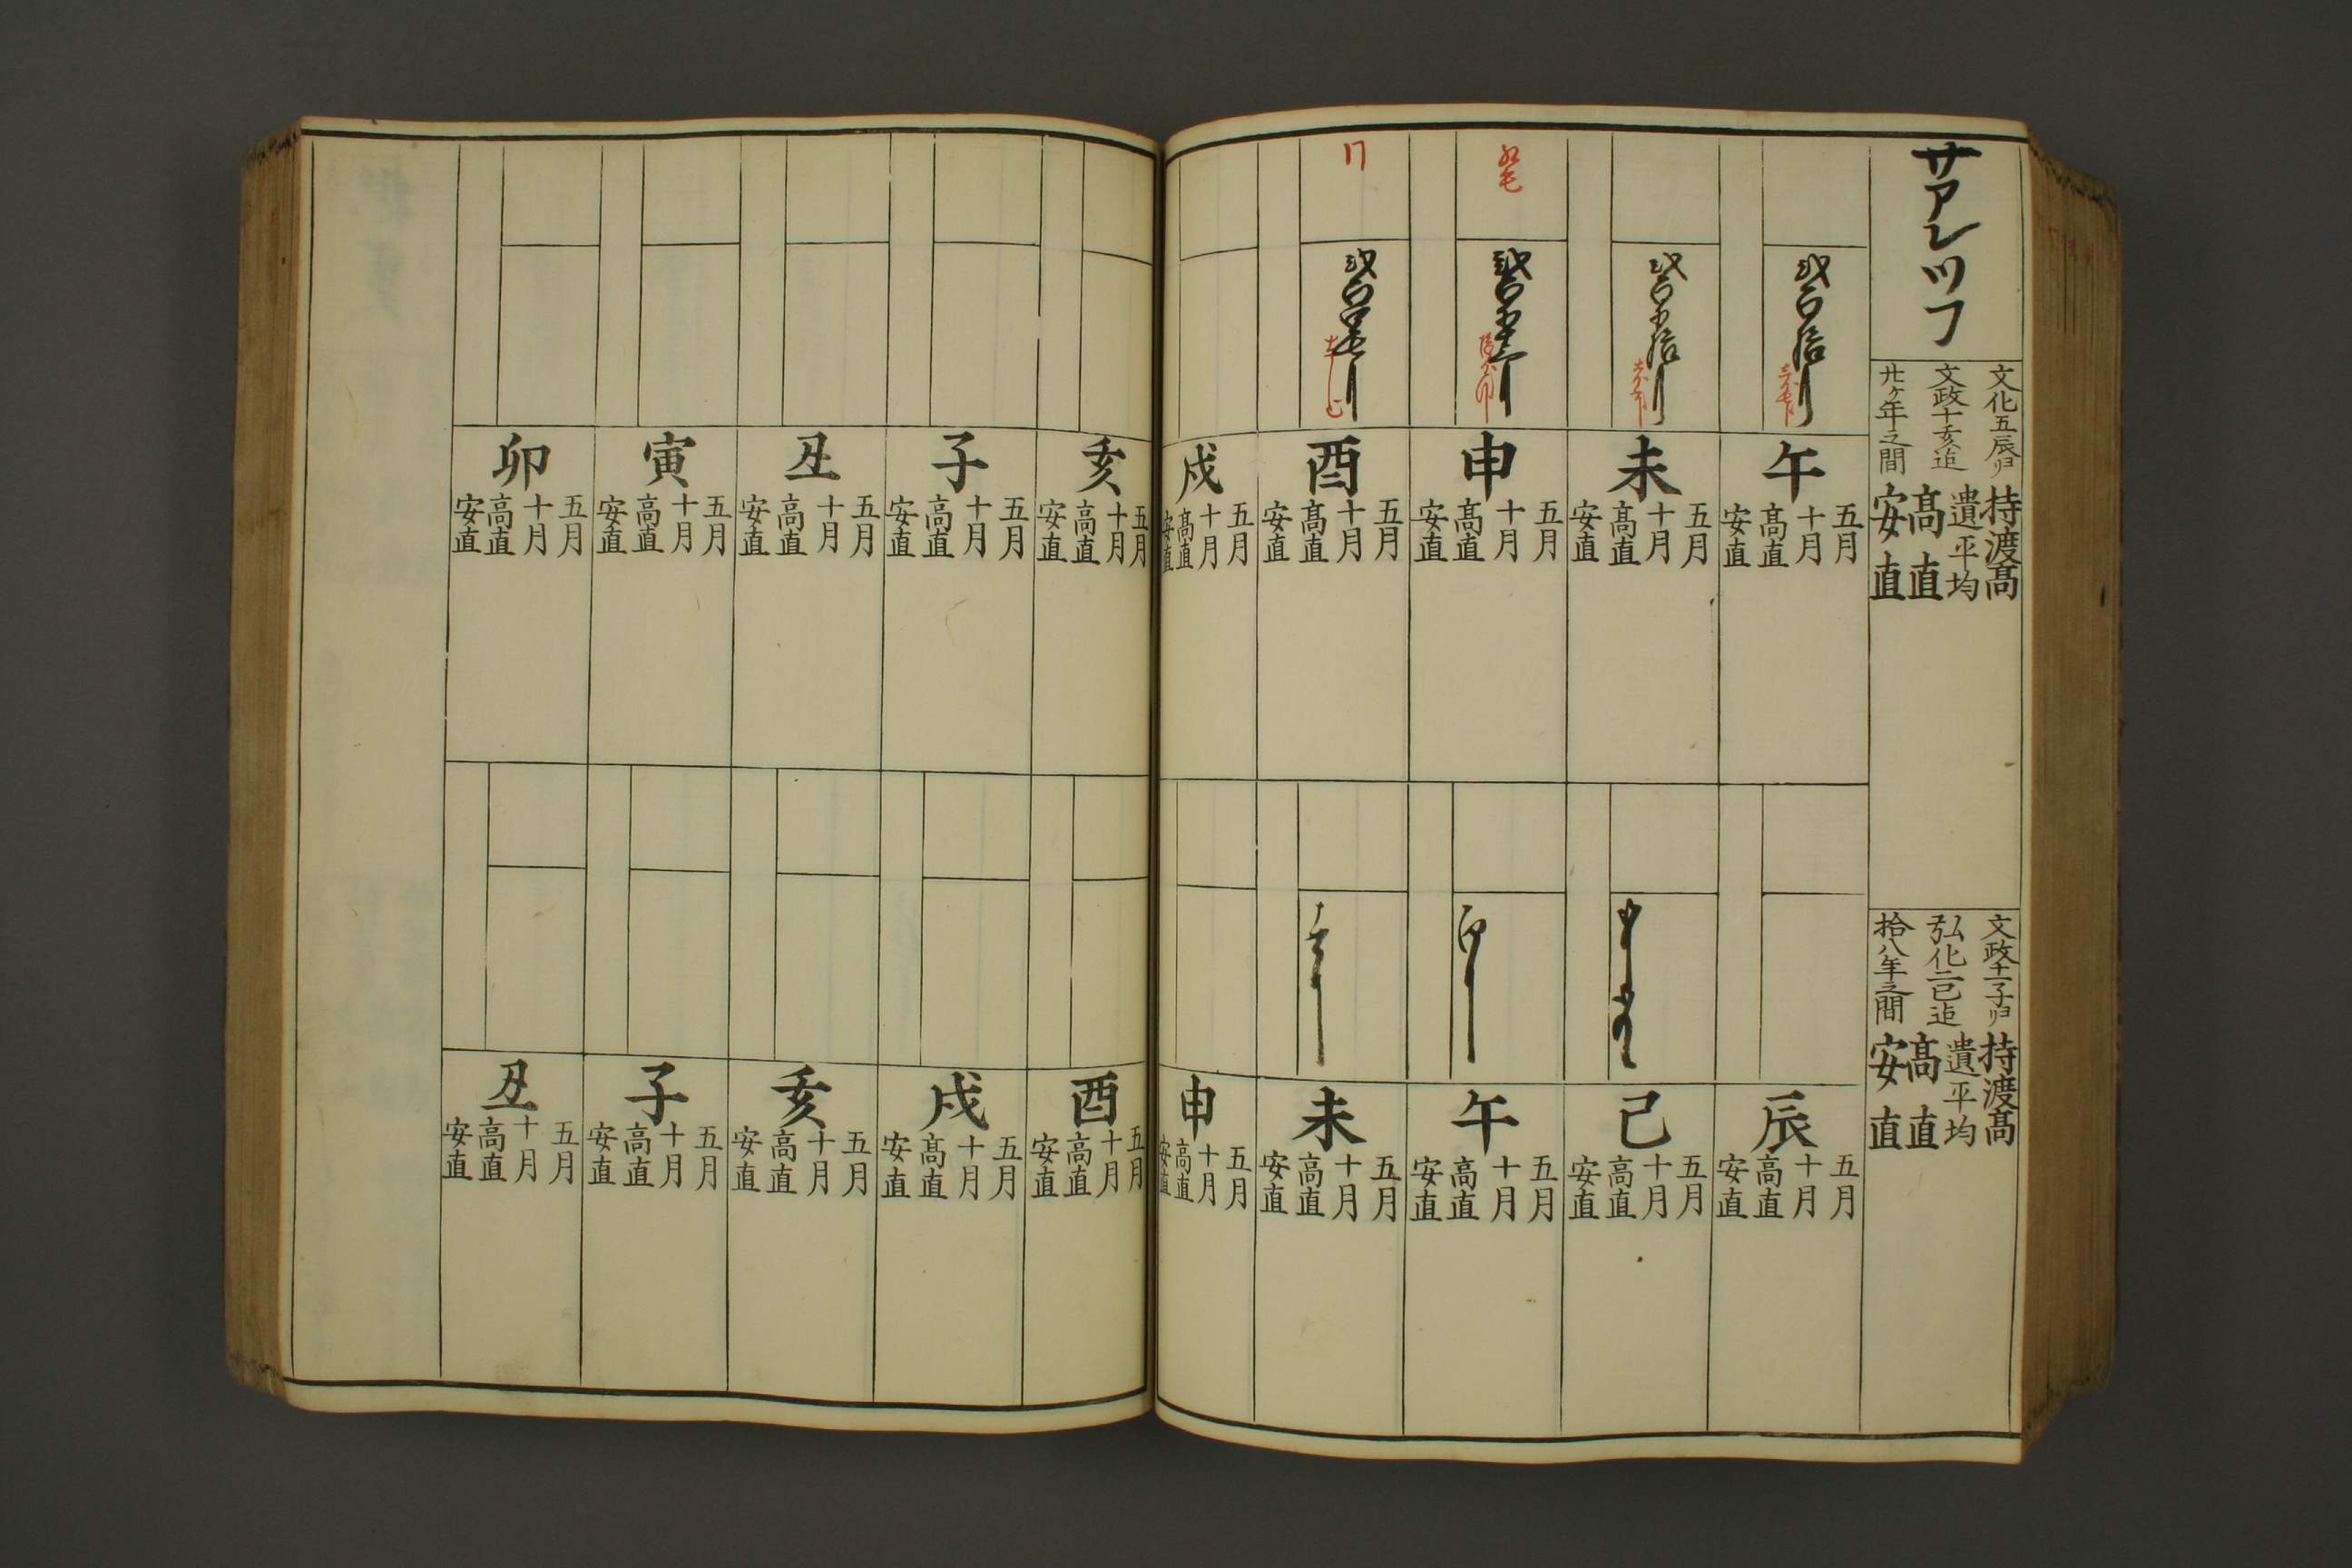 サアレツフ
文化五辰ゟ
文政十亥迄
廿ヶ年之間
持渡髙
遺平均
髙直
安直
文政十一子ゟ
弘化二巳迄
拾八年之間
持渡髙
遺平均
髙直
安直
午
五月
十月
髙直
安直
未
五月
十月
髙直
安直
紅毛
申
五月
十月
髙直
安直
酉
五月
十月
髙直
安直
戌
五月
十月
髙直
安直
辰
五月
十月
髙直
安直
己
五月
十月
髙直
安直
午
五月
十月
髙直
安直
未
五月
十月
髙直
安直
申
五月
十月
髙直
安直
亥
五月
十月
髙直
安直
子
五月
十月
髙直
安直
丑
五月
十月
髙直
安直
寅
五月
十月
髙直
安直
卯
五月
十月
髙直
安直
酉
五月
十月
髙直
安直
戌
五月
十月
髙直
安直
亥
五月
十月
髙直
安直
子
五月
十月
髙直
安直
丑
五月
十月
髙直
安直